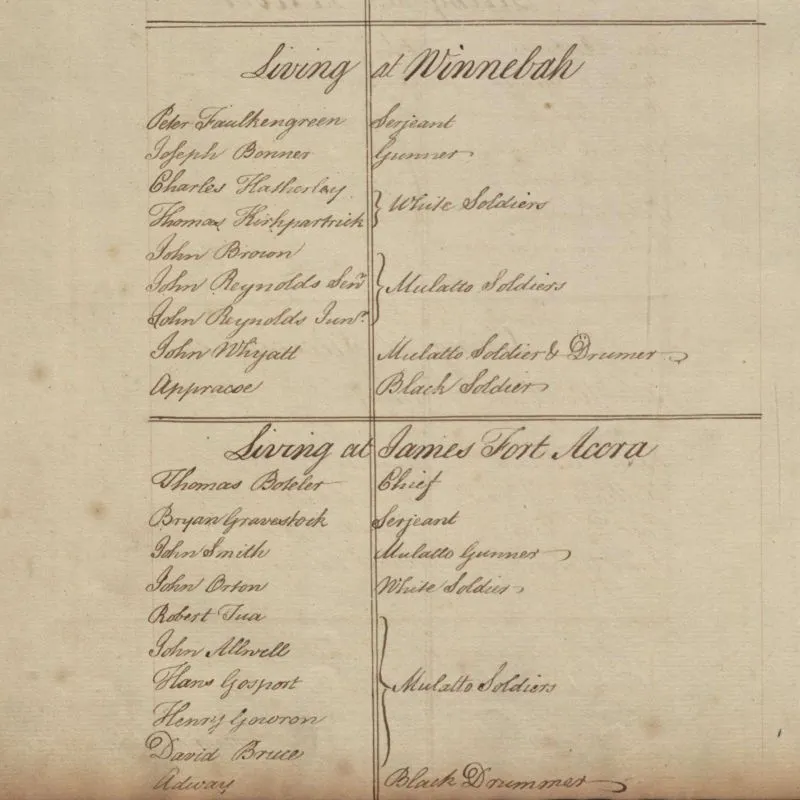 Living at Winnebah
Peter Faulkengreen Serjeant
Joseph Bonner Gunner
Charles Hatherley
Thomas Kirkpartrick } White Soldiers
John Brown
John Reynolds Senr. } Mulatto Soldiers
John Reynolds Junr.
John Whyatt Mulatto Soldier & Drumer
Appracoe Black Soldier
Living at James Fort Accra
Thomas Boteler Chief
Bryan Gravestock Serjeant
John Smith Mulatto Gunner
John Orton White Soldier
Robert Tua
John Allwell
Hans Gosport } Mulatto Soldiers
Henry Gowron
David Bruce
Adway Black Drummer